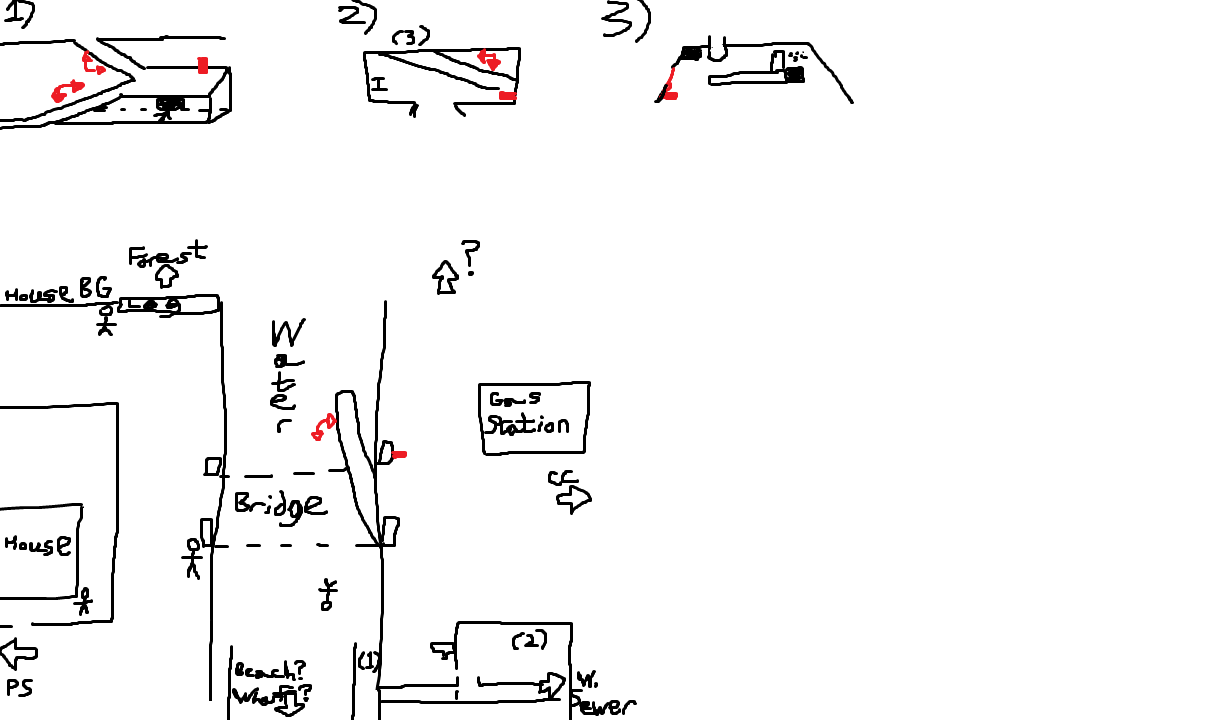 1)
2)
3)
(3)
I
Forest
?
House BG
Water
Gas
Station
CC
Bridge
House
(2)
(1)
Beach?
What?
W.
Sewer
PS